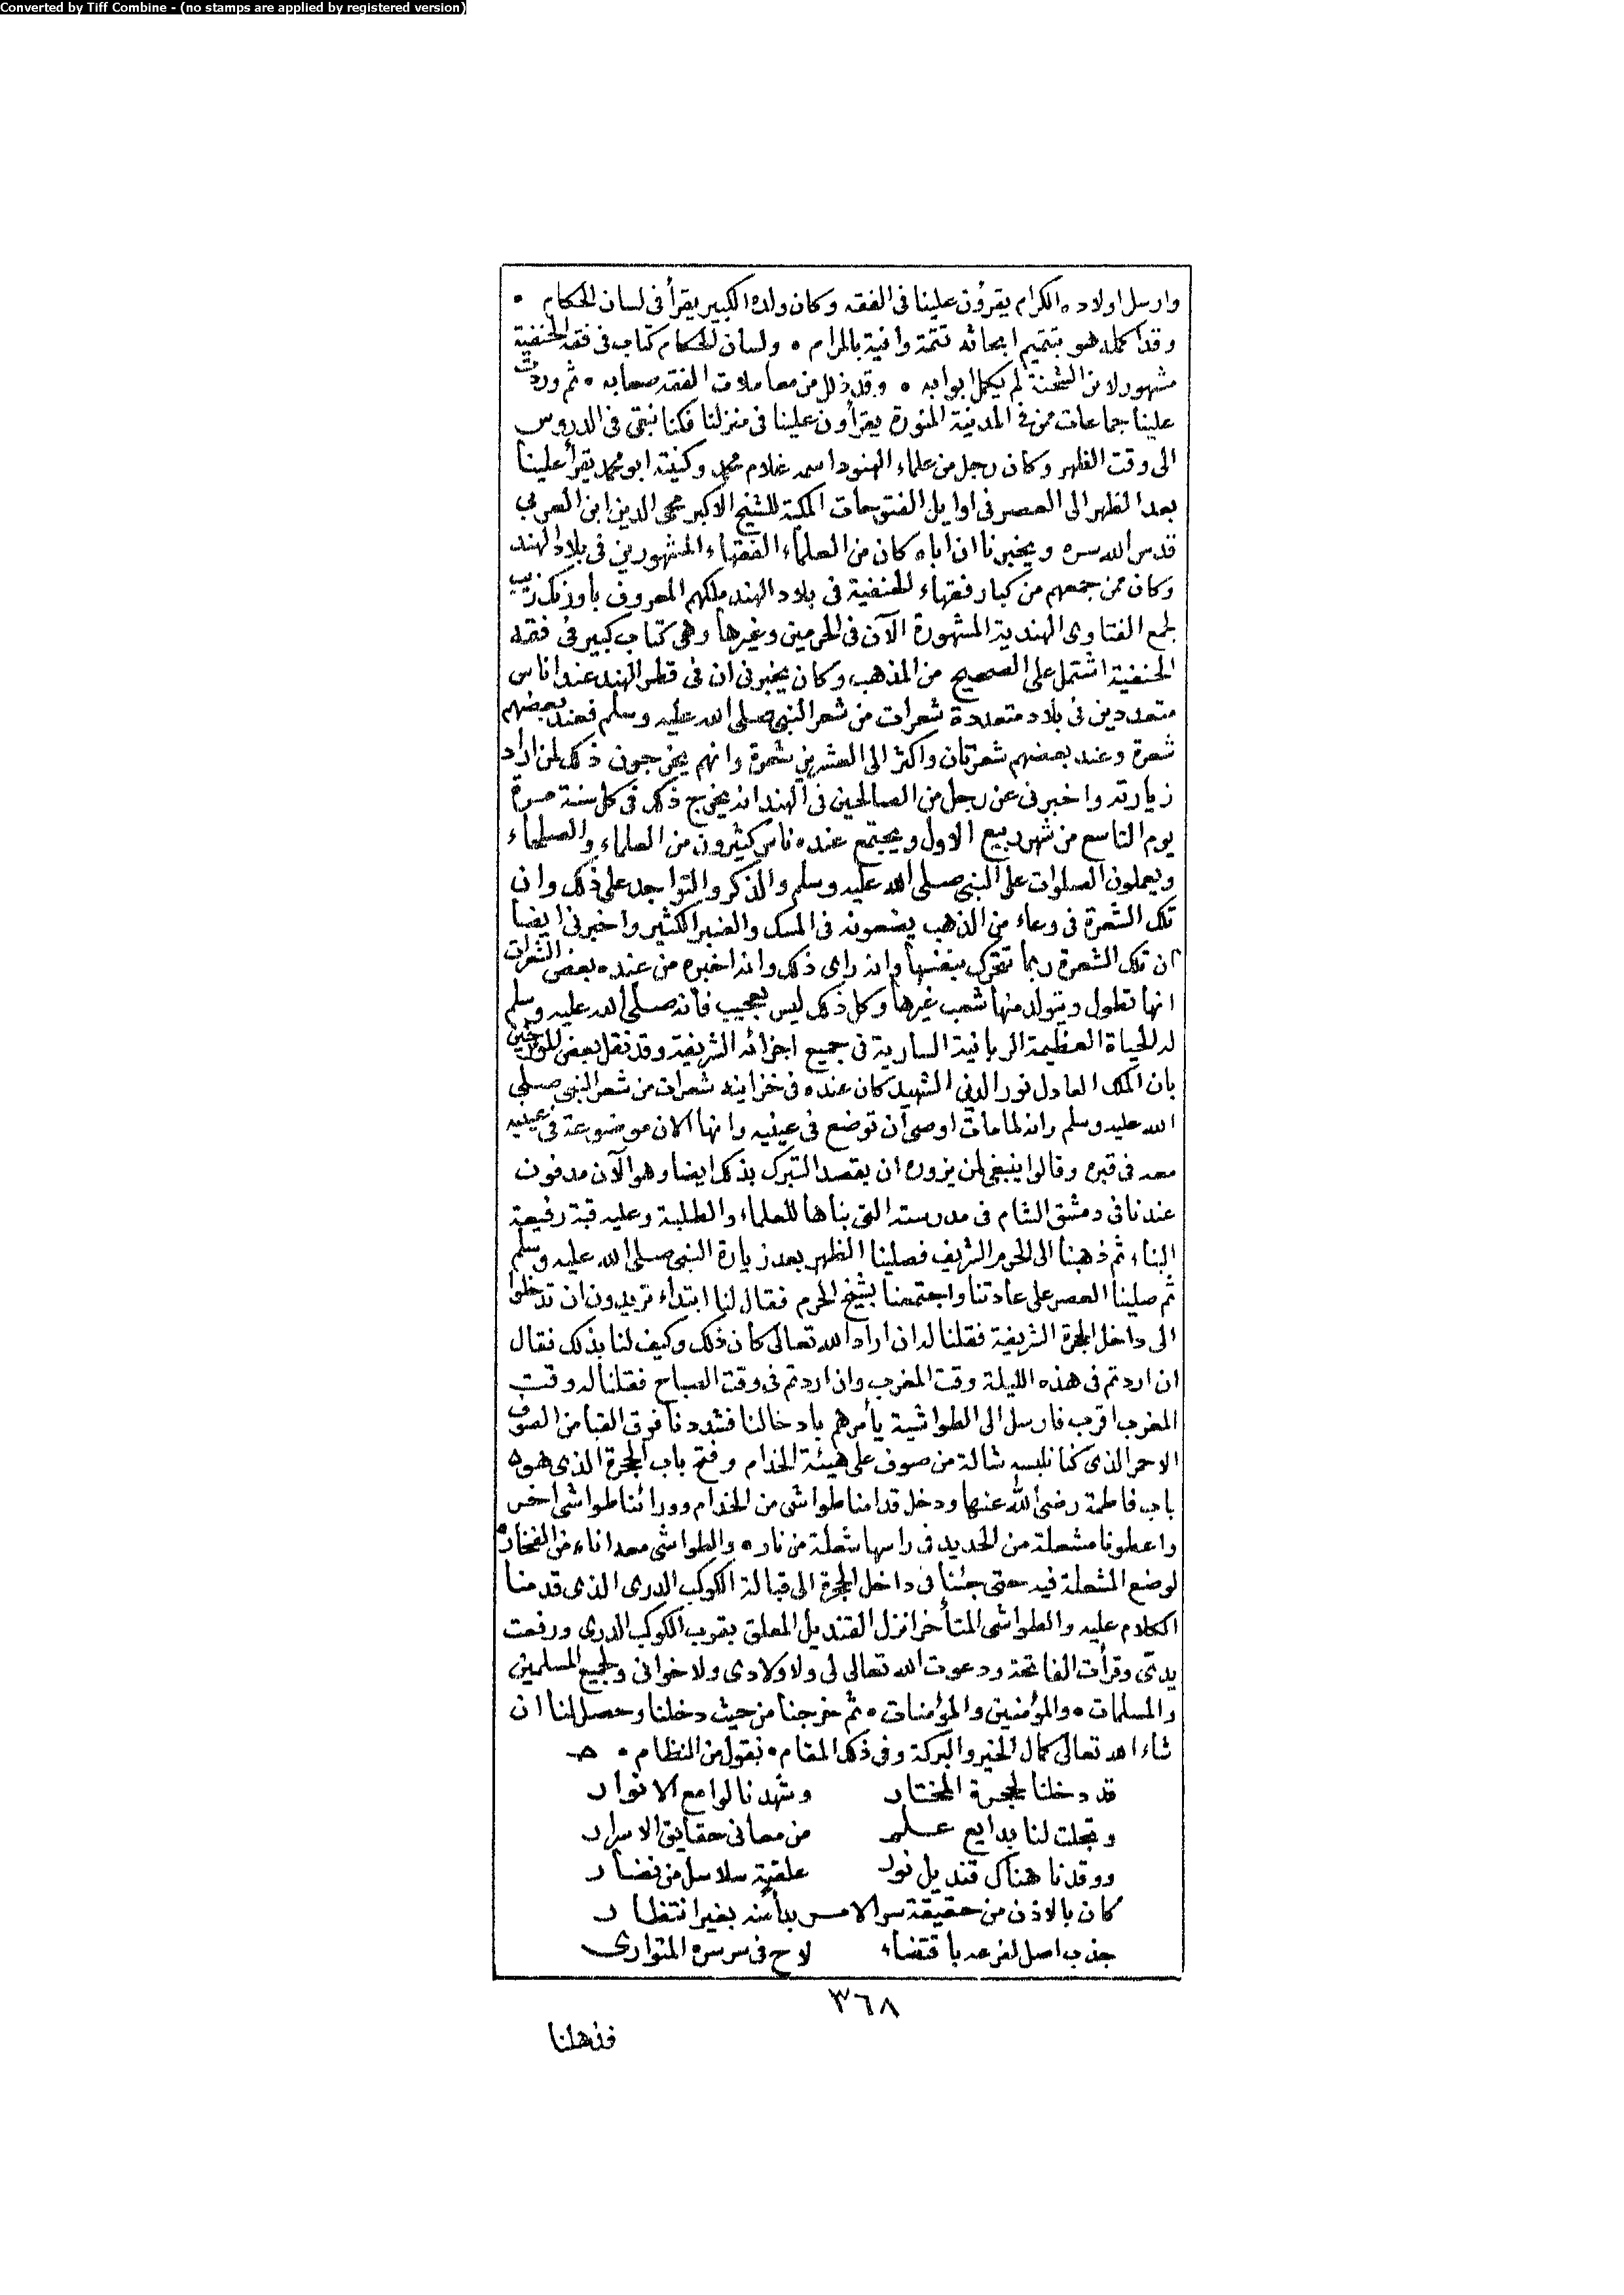 Converted by Tiff Combine - (no stamps are applied by registered version)
وارسل اولاده الكرام يقرؤن علينا فى الفقه وكان ولده الكبير يقرأ فى لسان الحكام •
وقد اكمله هو بتتميم ابحاثه تتمة وافية بالمرام • ولسان الحكام كتاب فى فقه الحنفية
مشهور لابن الشحنة لم يكمل ابوابه • وقد ذلل من معاملات الفقه صعابه • ثم وردت
علينا جماعات ممن فى المدينة المنورة يقرأون علينا فى منزلنا فكنا نبقى فى الدروس
الى وقت الظهر وكان رجل من علماء الهنود اسمه غلام محمد وكنيته ابو محمد يقرأ علينا
بعد الظهر الى العصر فى اوايل الفتوحات المكية للشيخ الاكبر محى الدين ابن العربي
قدس الله سره ويخبرنا ان اباه كان من العلماء الفقهاء المشهورين فى بلاد الهند
وكان ممن جمعهم من كبار فقهاء الحنفية فى بلاد الهند ملكهم المعروف باورنك زيب
لجمع الفتاوى الهندية المشهورة الآن فى الحرمين وغيرها وهى كتاب كبير فى فقه
الحنفية اشتمل على الصحيح من المذهب وكان يخبرنى ان فى قطر الهند عند اناس
متعددين فى بلاد متعددة شعرات من شعر النبى صلى الله عليه وسلم فعند بعضهم
شعرة وعند بعضهم شعرتان واكثر الى العشرين شعرة وانهم يخرجون ذلك لمن اراد
زيارته واخبرنى عن رجل من الصالحين فى الهند انه يخرج ذلك فى كل سنة مرة
يوم التاسع من شهر ربيع الاول ويجتمع عنده ناس كثيرون من العلماء والصلحاء
ويعملون الصلوات على النبى صلى الله عليه وسلم والذكر والتواجد على ذلك وان
تلك الشعرة فى وعاء من الذهب يضعونه فى المسك والعنبر الكثير واخبرنى ايضا
ان تلك الشعرة ربما تتحرك بنفسها وانه راى ذلك وانه اخبره من عنده بعض الشعرات
انها تطول ويتولد منها شعب غيرها وكل ذلك ليس بعجيب فانه صلى الله عليه وسلم
له الحياة العظيمة الربانية السارية فى جميع اجزائه الشريفة وقد نقل بعض المؤرخين
بان الملك العادل نور الدين الشهيد كان عنده فى خزاينه شعرات من شعر النبى صلى
الله عليه وسلم وانه لما مات اوصى ان توضع فى عينيه وانها الان موضوعة فى عينيه
معه فى قبره وقالوا ينبغى لمن يزوره ان يقصد التبرك بذلك ايضا وهو الآن مدفون
عندنا فى دمشق الشام فى مدرسته التى بناها للعلماء والطلبة وعليه قبة رفيعة
البناء ثم ذهبنا الى الحرم الشريف فصلينا الظهر بعد زيارة النبى صلى الله عليه وسلم
ثم صلينا العصر على عادتنا واجتمعنا بشيخ الحرم فقال لنا ابتداء تريدون ان تدخلوا
الى داخل الحجرة الشريفة فقلنا له ان اراد الله تعالى كان ذلك وكيف لنا بذلك فقال
ان اردتم فى هذه الليلة وقت المغرب وان اردتم فى وقت الصباح فقلنا له وقت
المغرب اقرب فارسل الى الطواشية يأمرهم بادخالنا فشددنا فوق القبا من الصوف
الاحمر الذى كنا نلبسه شالة من صوف على هيئة الخدام وفتح باب الحجرة الذى هو
باب فاطمة رضى الله عنها ودخل قدامنا طواشى من الخدام وورائنا طواشى اخر
واعطونا مشعلة من الحديد فى راسها شعلة من نار • والطواشى معه اناء من الفخار •
لوضع المشعلة فيه حتى جئنا فى داخل الحجرة الى قبالة الكوكب الدرى الذى قدمنا
الكلام عليه والطواشى المتأخر انزل القنديل المعلق بقرب الكوكب الدرى ورفعت
يدىّ وقرأت الفاتحة ودعوت الله تعالى لى ولاولادى ولاخوانى ولجميع المسلمين
والمسلمات • والمؤمنين والمؤمنات • ثم خرجنا من حيث دخلنا وحصل لنا ان
شاء الله تعالى كمال الخير والبركة وفى ذلك المقام • نقول من النظام •
قد دخلنا لحجرة المختار وشهدنا لوامع الانوار
وتجلت لنا بدايع علم من معانى حقايق الاسرار
ووقدنا هناك قنديل نور علقته سلاسل من نضار
كان بالاذن من حقيقة سر الامر بدأ منه بغير انتظار
جذب اصل لفرعه باقتضاء لاح فى سر سره المتوارى
٣٦٨
فذهلنا